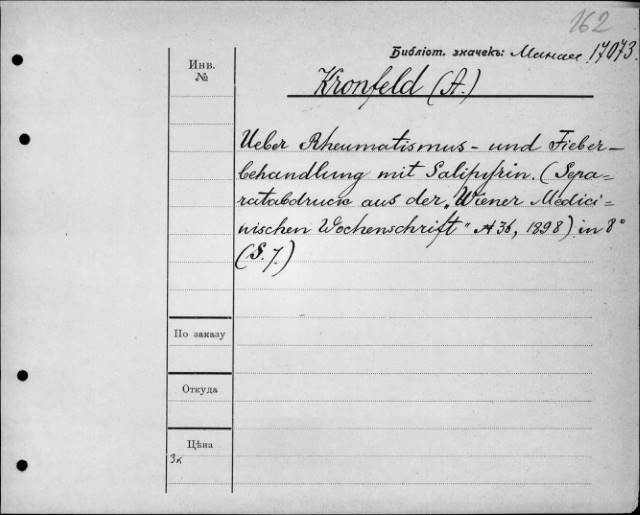 162
Библіот. значекъ: Минаи 17073.
Инв.
№
Kronfeld (A.)
Ueber Rheumatismus- und Fieber-
behandlung mit Salipyrin. (Sepa-
ratabdruck aus der „Wiener Medici-
nischen Wochenschrift" № 36, 1898) in 8°
(S. 7.)
По заказу
Откуда
Цѣна
3к